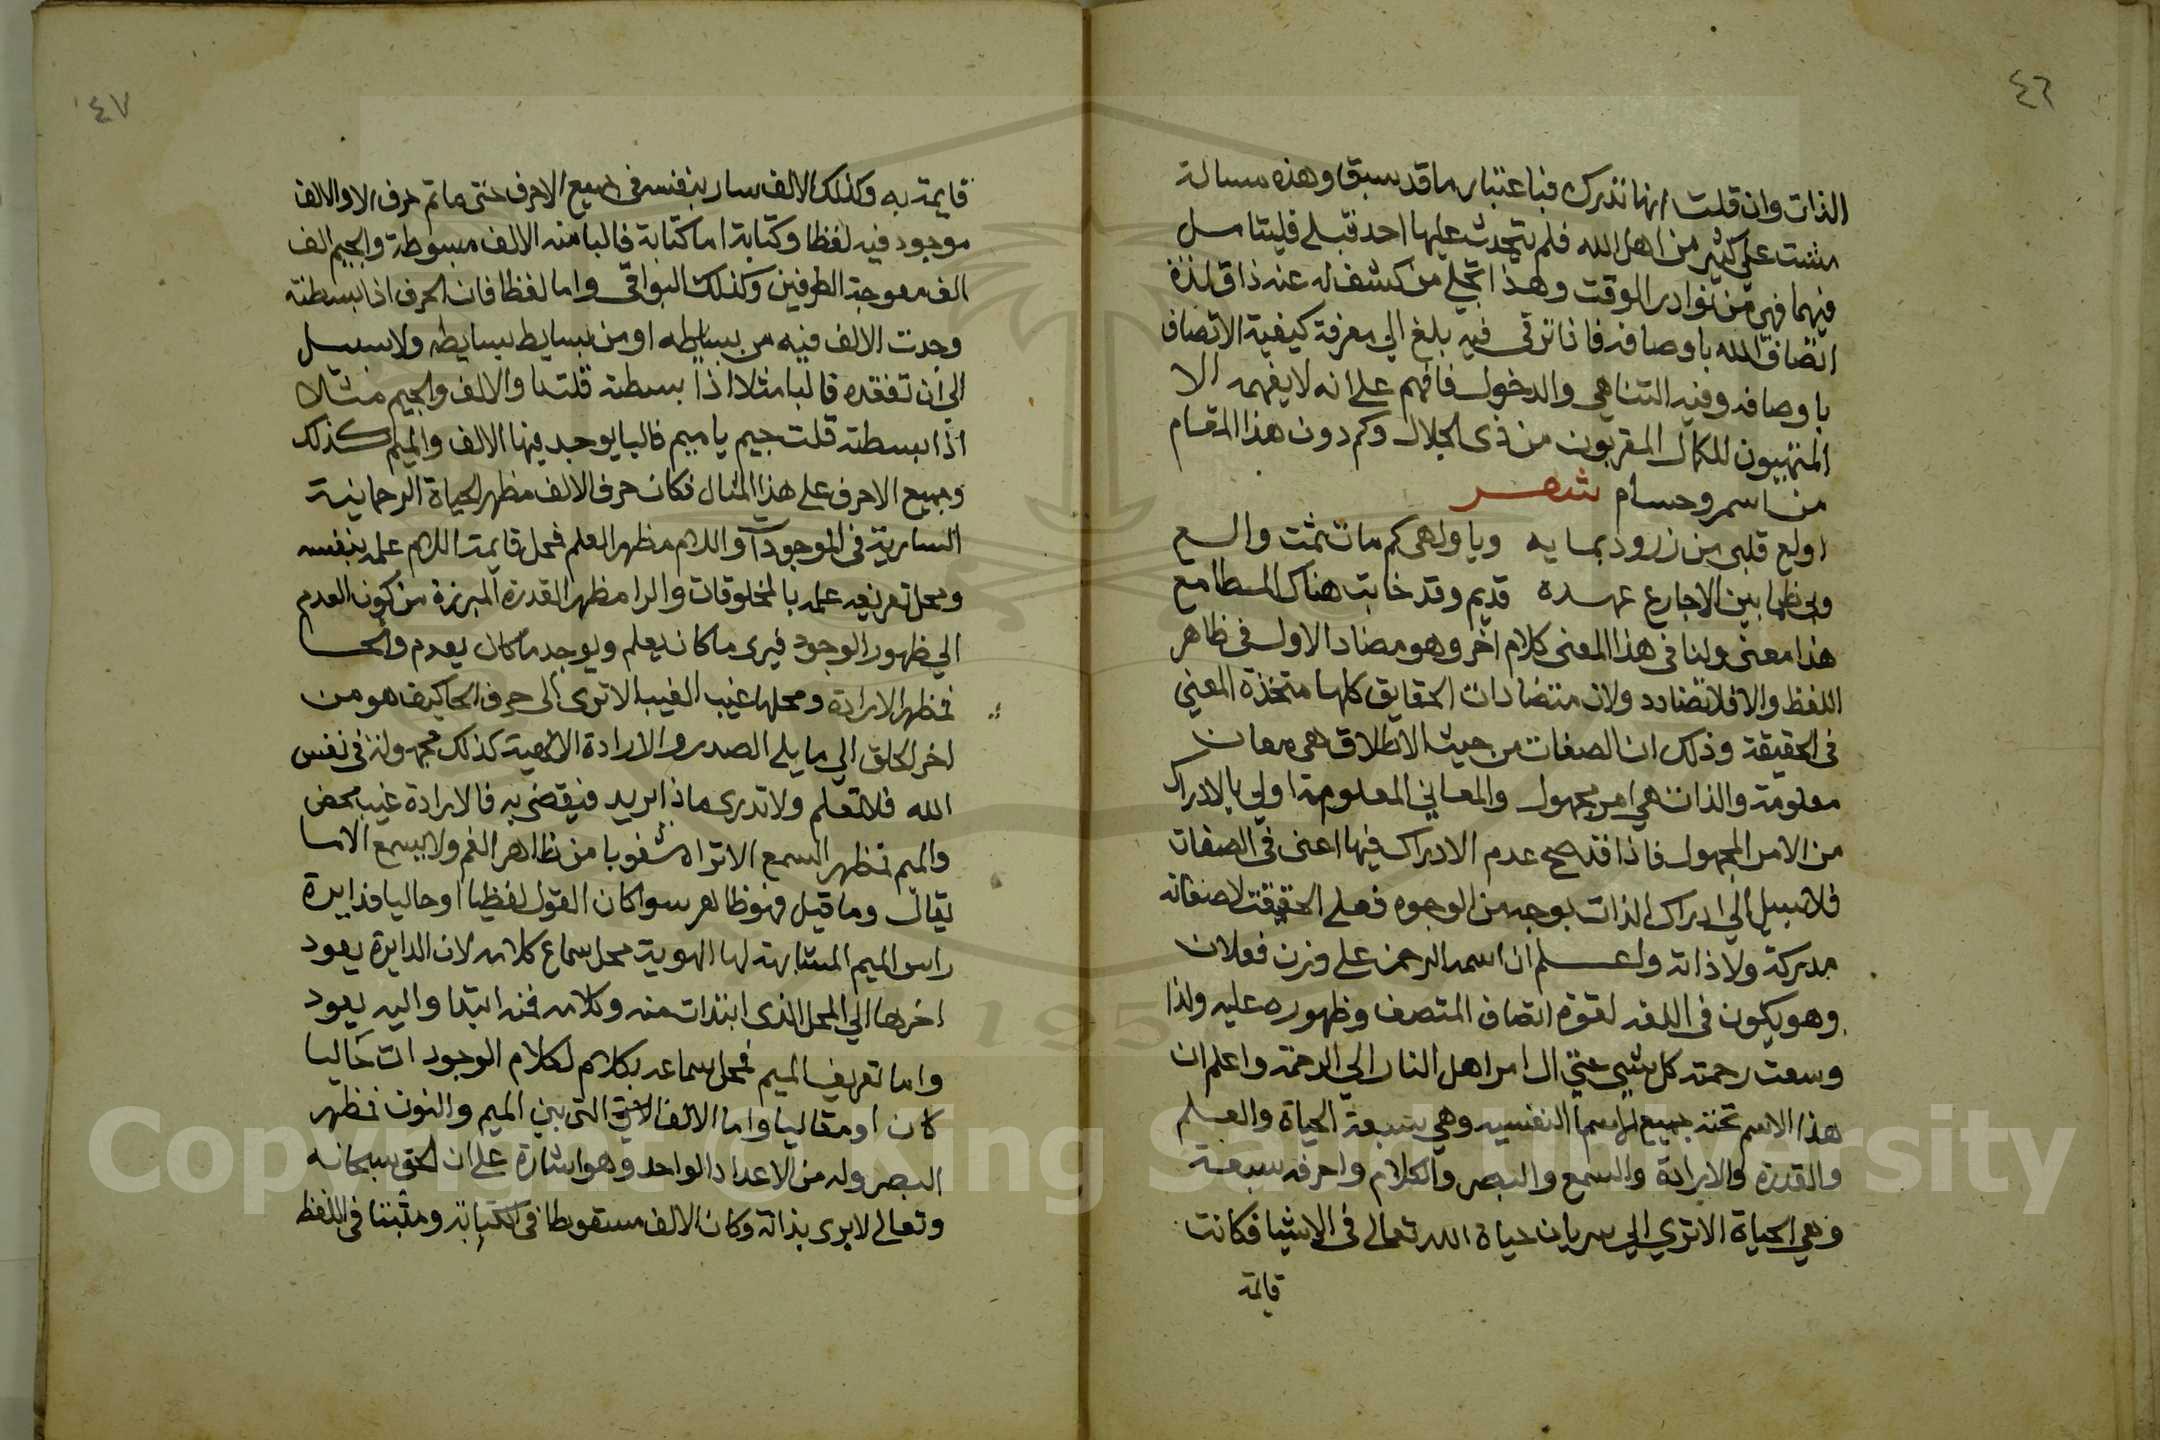 ٤٦
الذات وان قلت انها تدرك فباعتبار ما قد سبق وهذه مسالة
مشت على كثير من اهل الله فلم يتحدث عليها احد قبلى فليتامل
فيهما فهى من نوادر الوقت وهذا تجلى من كشف له عنه ذاق لذة
اتصاف الله باوصافه فاذا ترقى فيه بلغ الى معرفة كيفية الاتصاف
باوصافه وفيه التناهى والدخول فافهم على انه لا يفهمه الا
المتهيون للكمال المقربون من ذى الجلال وكم دون هذا المقام
من اسمر وحسام شعر
اولع قلبى من زرود بمايه وياولهى كم مات ثمت والع
ولى ظما بين الاجارع عهده قديم وقد خابت هناك المطامع
هذا معنى ولنا فى هذا المعنى كلام اخر وهو مضاد الاول فى ظاهر
اللفظ والا فلا تضادد ولان متضادات الحقايق كلها متخذة المعنى
فى الحقيقة وذلك ان الصفات من حيث الاطلاق هى معان
معلومة والذات هى امر مجهول والمعانى المعلومة اولى بالادراك
من الامر المجهول فاذا قد صح عدم الادراك فيها اعنى فى الصفات
فلا سبيل الى ادراك الذات بوجه من الوجوه فعلى الحقيقة لا صفاته
مدركة ولا ذاته واعلم ان اسمه الرحمن على وزن فعلان
وهو يكون فى اللغه لقوة اتصاف المتصف وظهوره عليه ولذا
وسعت رحمته كل شى حتى ال امر اهل النار الى الرحمة واعلم ان
هذا الاسم تحته جميع الاسما النفسيه وهى سبعة الحياة والعلم
والقدرة والارادة والسمع والبصر والكلام واحرفه سبعة
وهى الحياة الا ترى الى سريان حياة الله تعالى فى الاشيا فكانت
قايمة
٤٧
قايمة به وكذلك الالف سار بنفسه فى جميع الاحرف حتى ما تم حرف الا والالف
موجود فيه لفظا وكتابة اما كتابة فالبا منه الالف مبسوطة والجيم الف
الف معوجة الطرفين وكذلك البواقى واما لفظا فان الحرف اذا بسطته
وجدت الالف فيه من بسايطه او من بسايط بسايطه ولا سبيل
الى ان تفقده فالبا مثلا اذا بسطته قلت با والالف والجيم مثلا
اذا بسطته قلت جيم يا ميم فاليا يوجد فيها الالف والميم كذلك
وجميع الاحرف على هذا المثال فكان حرف الالف مظهر الحياة الرحمانية
السارية فى الموجودات واللام مظهر العلم فمحل قايمة اللام علمه بنفسه
ومحل تعريفه علمه بالمخلوقات والرا مظهر القدرة المبرزة من كون العدم
الى ظهور الوجود فيرى ما كان يعلم ويوجد ما كان يعدم والحا
مظهر الارادة ومحلها غيب الغيب الا ترى الى حرف الحا كيف هو من
اخر الحلق الى ما يلى الصدر والارادة الالهية كذلك مجهولة فى نفس
الله فلا تعلم ولا تدرى ماذا يريد فيقضى به فالارادة غيب محض
والميم مظهر السمع الا تراه شفويا من ظاهر الفم ولا يسمع الا ما
يقال وما قيل فهو ظاهر سوا كان القول لفظيا او حاليا فدايرة
راس الميم المشابهة لها الهوية محل سماع كلامه لان الدايرة يعود
اخرها الى المحل الذى ابتدات منه وكلامه فمنه ابتدا واليه يعود
واما تعريف الميم فمحل سماعه بكلام لكلام الموجودات حاليا
كان او مقاليا واما الالف التى بين الميم والنون فمظهر
البصر وله من الاعداد الواحد وهو اشارة على ان الحق سبحانه
وتعالى لا يرى بذاته وكان الالف مسقوطا فى الكتابة ومثبتا فى اللفظ
Copyright © King Saud University
195